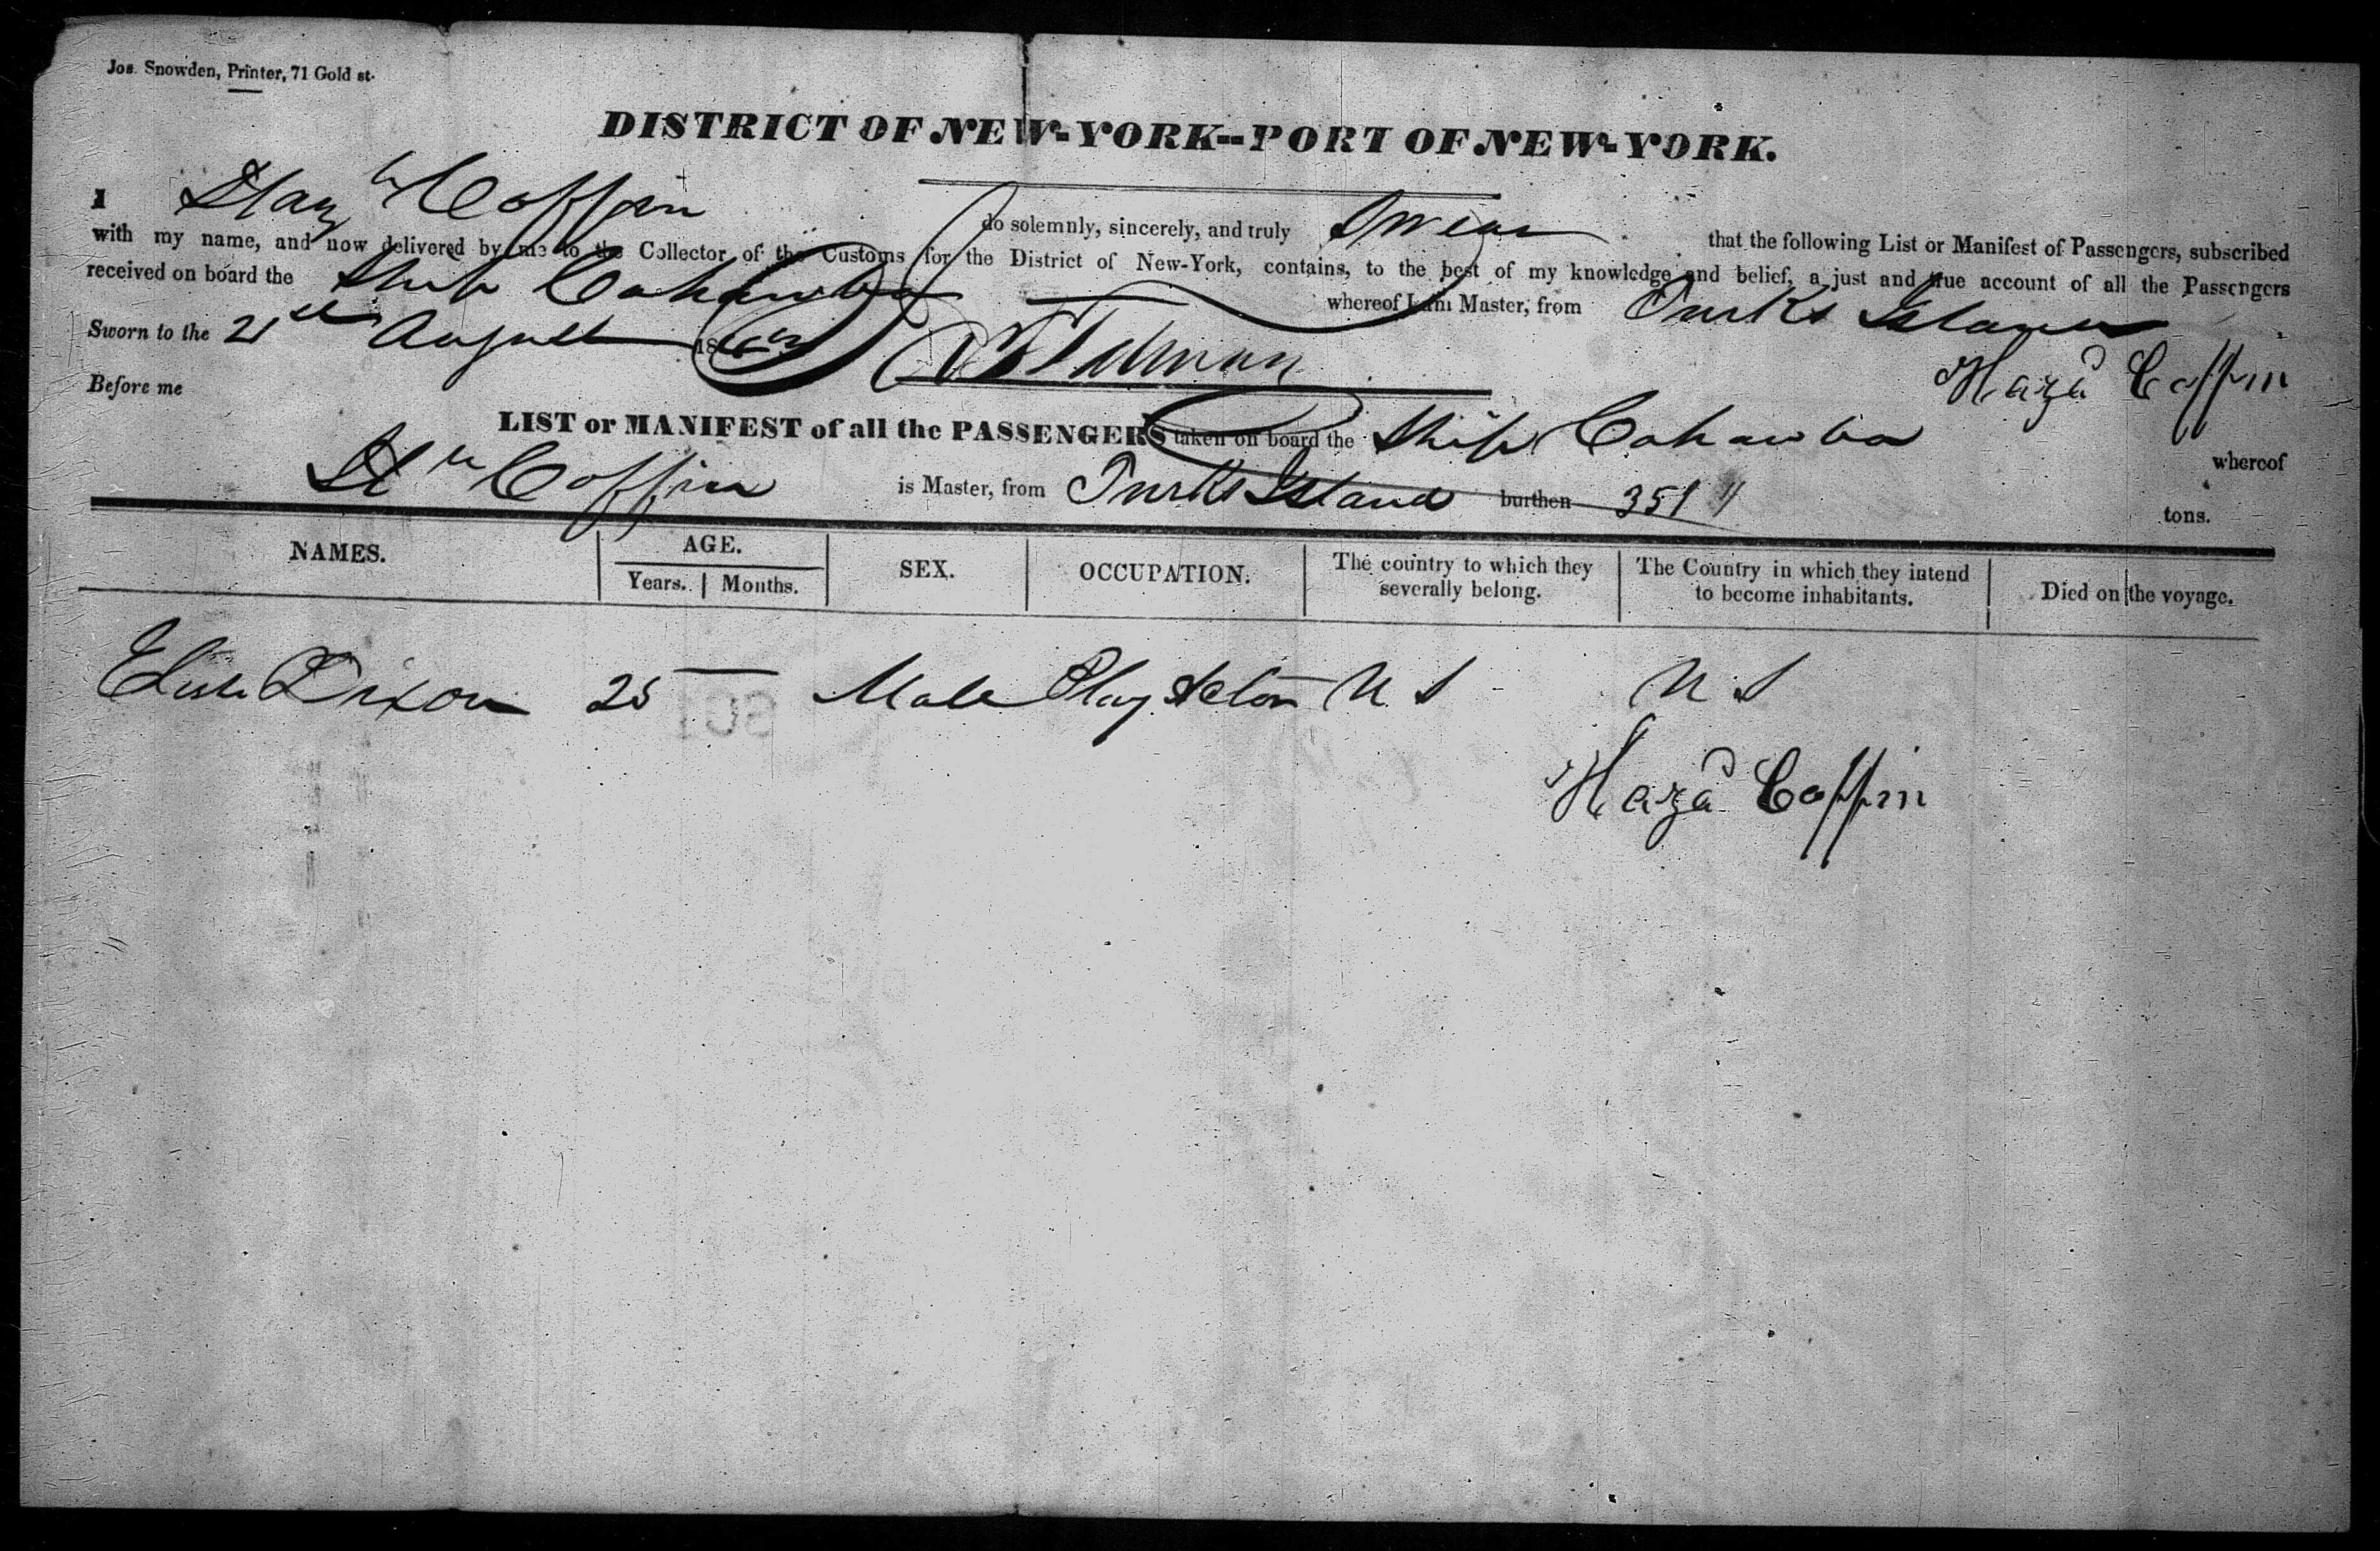 Jos. Snowden, Printer, 71 Gold st.
DISTRICT OF NEW-YORK--PORT OF NEW-YORK.
I Coffin do solemnly, sincerely, and truly Swear that the following List or Manifest of Passengers, subscribed
with my name, and now delivered by me to the Collector of the Customs for the District of New-York, contains, to the best of my knowledge and belief, a just and true account of all the Passengers
received on board the Ship Cahawba whereof I am Master, from Turks Island
Sworn to the 21st August 18
Hazd Coffin
Before me
LIST or MANIFEST of all the PASSENGERS taken on board the Ship Cahawba whereof
Coffin is Master, from Turks Island burthen 351 tons.
NAMES. AGE. SEX. OCCUPATION. The country to which they severally belong. The Country in which they intend to become inhabitants. Died on the voyage.
Years. Months.
Dixon 25 — Male U S U S
Hazd Coffin